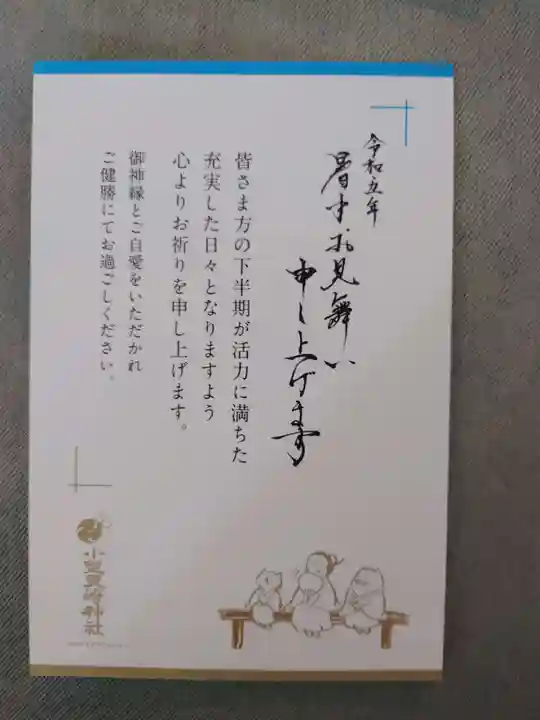 令和五年
暑中お見舞い
申し上げます
皆さま方の下半期が活力に満ちた
充実した日々となりますよう
心よりお祈りを申し上げます。
御神縁とご自愛をいただかれ
ご健勝にてお過ごしください。
神社